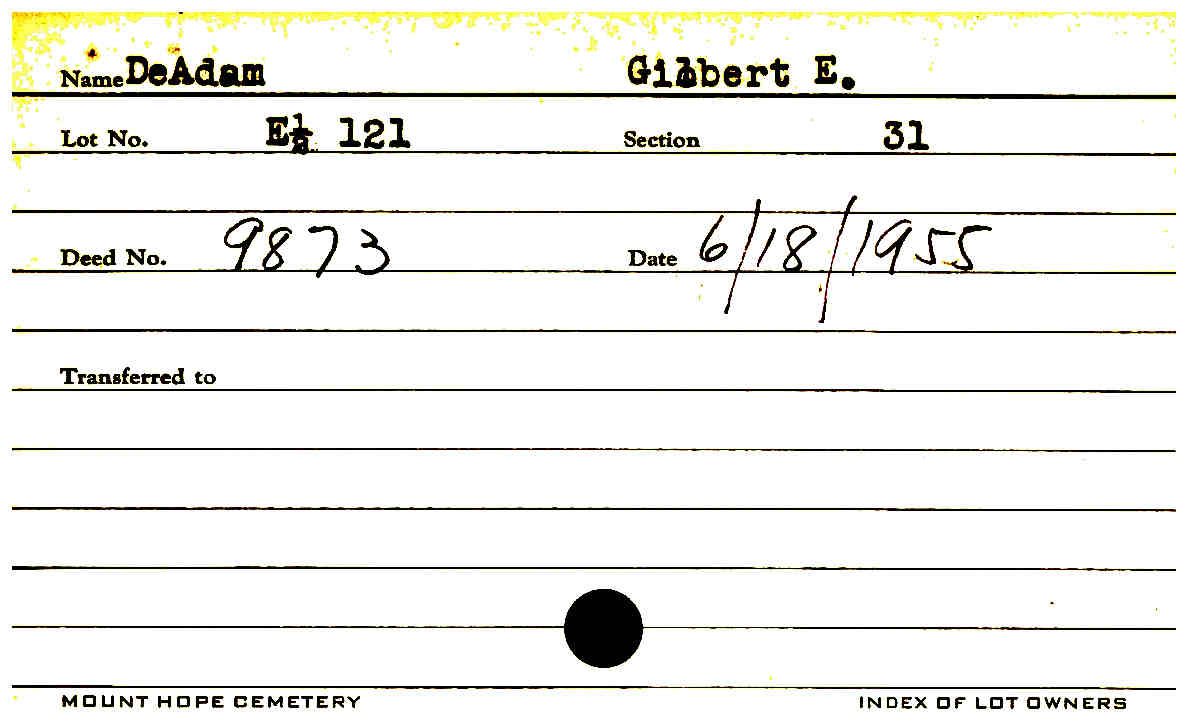 Name DeAdam Gilbert E.
Lot No. E½ 121 Section 31
Deed No. 9873 Date 6/18/1955
Transferred to
MOUNT HOPE CEMETERY INDEX OF LOT OWNERS